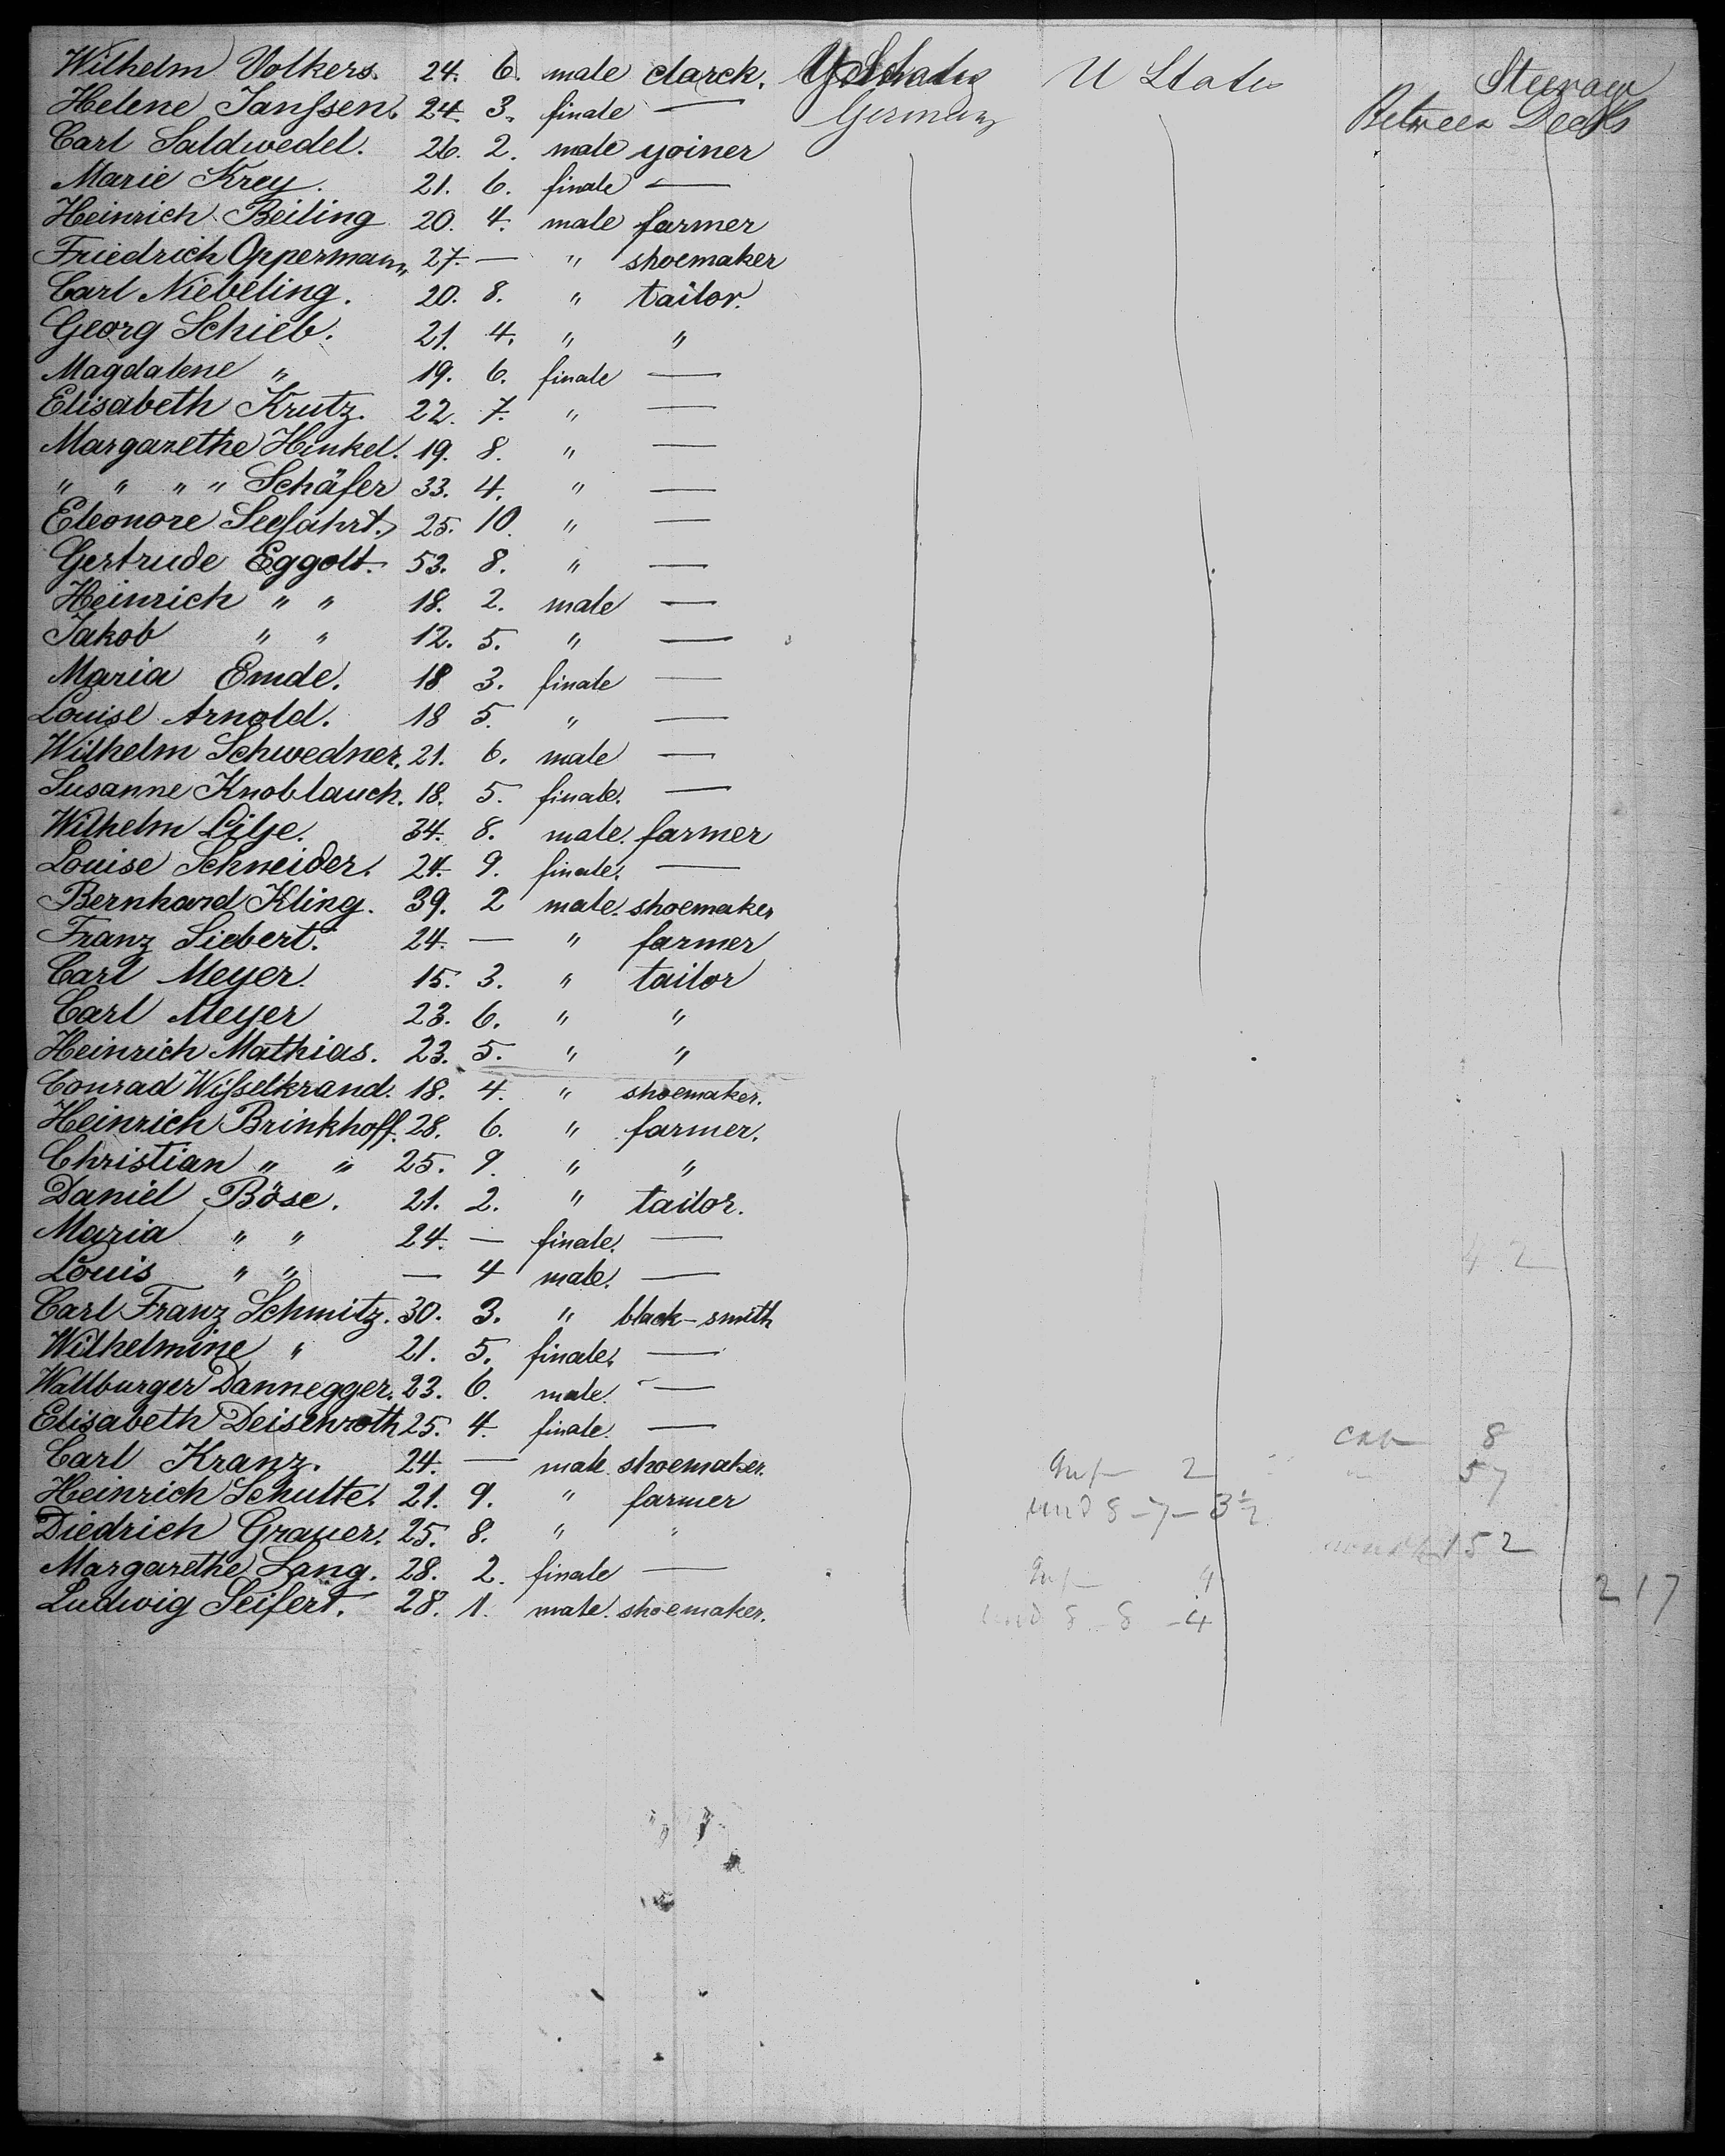 Wilhelm Volkers. 24. 6. male clarck. U States U States Steerage
Helene Janssen. 24. 3. finale — Germany Between Decks
Carl Saldwedel. 26. 2. male yoiner
Marie Krey. 21. 6. finale —
Heinrich Beiling 20. 4. male farmer
Friedrich Oppermann, 27. — " shoemaker
Carl Niebeling. 20. 8. " tailor.
Georg Schieb. 21. 4. " "
Magdalene " 19. 6. finale —
Elisabeth Krutz. 22. 7. " —
Margarethe Hinkel. 19. 8. " —
" " " " Schäfer 33. 4. " —
Eleonore Seefahrt. 25. 10. " —
Gertrude Eggolt. 53. 8. " —
Heinrich " " 18. 2. male —
Jakob " " 12. 5. " —
Maria Emde. 18 3. finale —
Louise Arnold. 18 5. " —
Wilhelm Schwedner. 21. 6. male —
Susanne Knoblauch. 18. 5. finale. —
Wilhelm Lilje. 34. 8. male. farmer
Louise Schneider. 24. 9. finale. —
Bernhard Kling. 39. 2 male. shoemaker
Franz Siebert. 24. — " farmer
Carl Meyer. 15. 3. " tailor
Carl Meyer 23. 6. " "
Heinrich Mathias. 23. 5. " "
Conrad Wisselkrand. 18. 4. " shoemaker.
Heinrich Brinkhoff. 28. 6. " farmer.
Christian " " 25. 9. " "
Daniel Böse. 21. 2. " tailor.
Maria " " 24. — finale. —
Louis " " — 4 male. — 42
Carl Franz Schmitz. 30. 3. " black-smith
Wilhelmine " 21. 5. finale. —
Wallburger Dannegger. 23. 6. male. —
Elisabeth Deisenroth 25. 4. finale. — cab 8
Carl Kranz. 24. — male. shoemaker. Inf— 2 57
Heinrich Schulte. 21. 9. " farmer und 8 - 7 - 3½
Diedrich Grauer. 25. 8. " " 152
Margarethe Lang. 28. 2. finale — Inf— 217
Ludwig Seifert. 28. 1. male. shoemaker. und 8 8 - 4